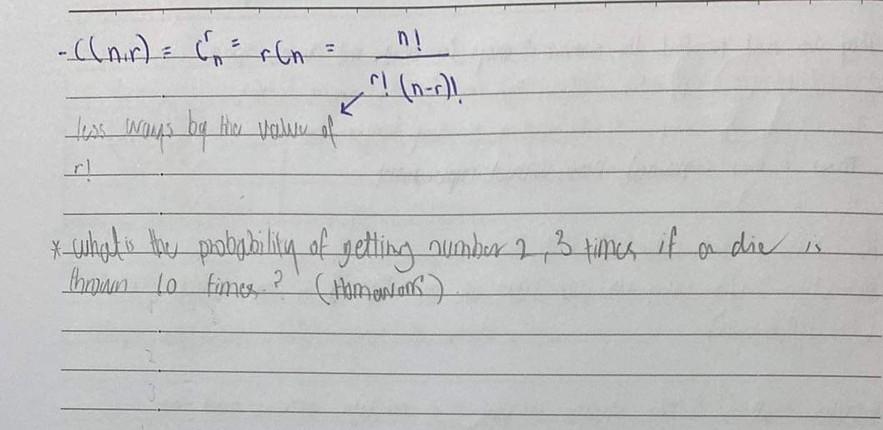 - C(n,r) = Cʳₙ = rCn = n! / r! (n-r)!
less ways by the value of
r!
* what is the probability of getting number 2, 3 times if a die is
thrown 10 times? 
2
3